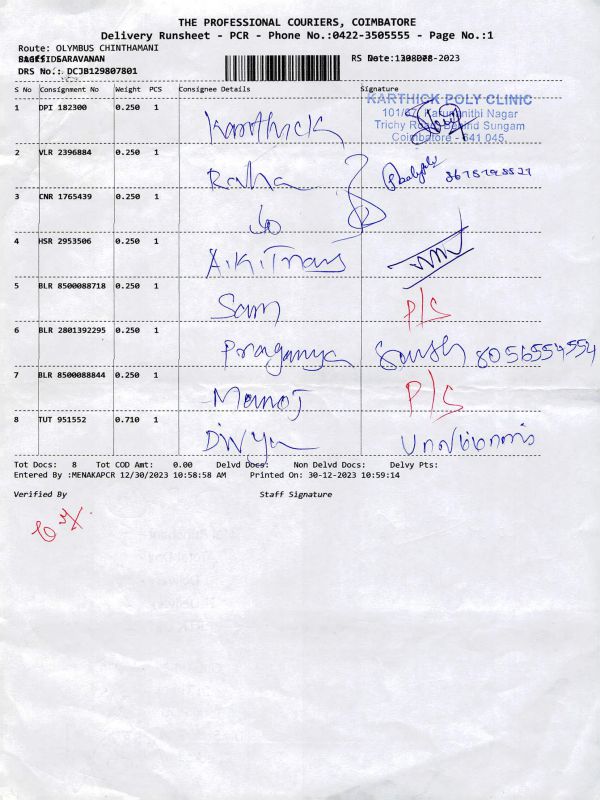 THE PROFESSIONAL COURIERS, COIMBATORE
Delivery Runsheet - PCR - Phone No.:0422-3505555 - Page No.:1
Route: OLYMBUS CHINTHAMANI
SARAVANAN RS Date: -2023
DRS No.: DCJB129807801
S No Consignment No Weight PCS Consignee Details Signature
KARTHICK POLY CLINIC
1 DPI 182300 0.250 1 Karthick 101/ Karunanithi Nagar
Trichy Road Behind Sungam
Coimbatore - 641 045.
2 VLR 2396884 0.250 1 Raha
3 CNR 1765439 0.250 1
4 HSR 2953506 0.250 1
5 BLR 8500088718 0.250 1 Sam P/S
6 BLR 2801392295 0.250 1 Praganya 8056554554
7 BLR 8500088844 0.250 1 Manoj P/S
8 TUT 951552 0.710 1 Divya
Tot Docs: 8 Tot COD Amt: 0.00 Delvd Docs: Non Delvd Docs: Delvy Pts:
Entered By :MENAKAPCR 12/30/2023 10:58:58 AM Printed On: 30-12-2023 10:59:14
Verified By Staff Signature